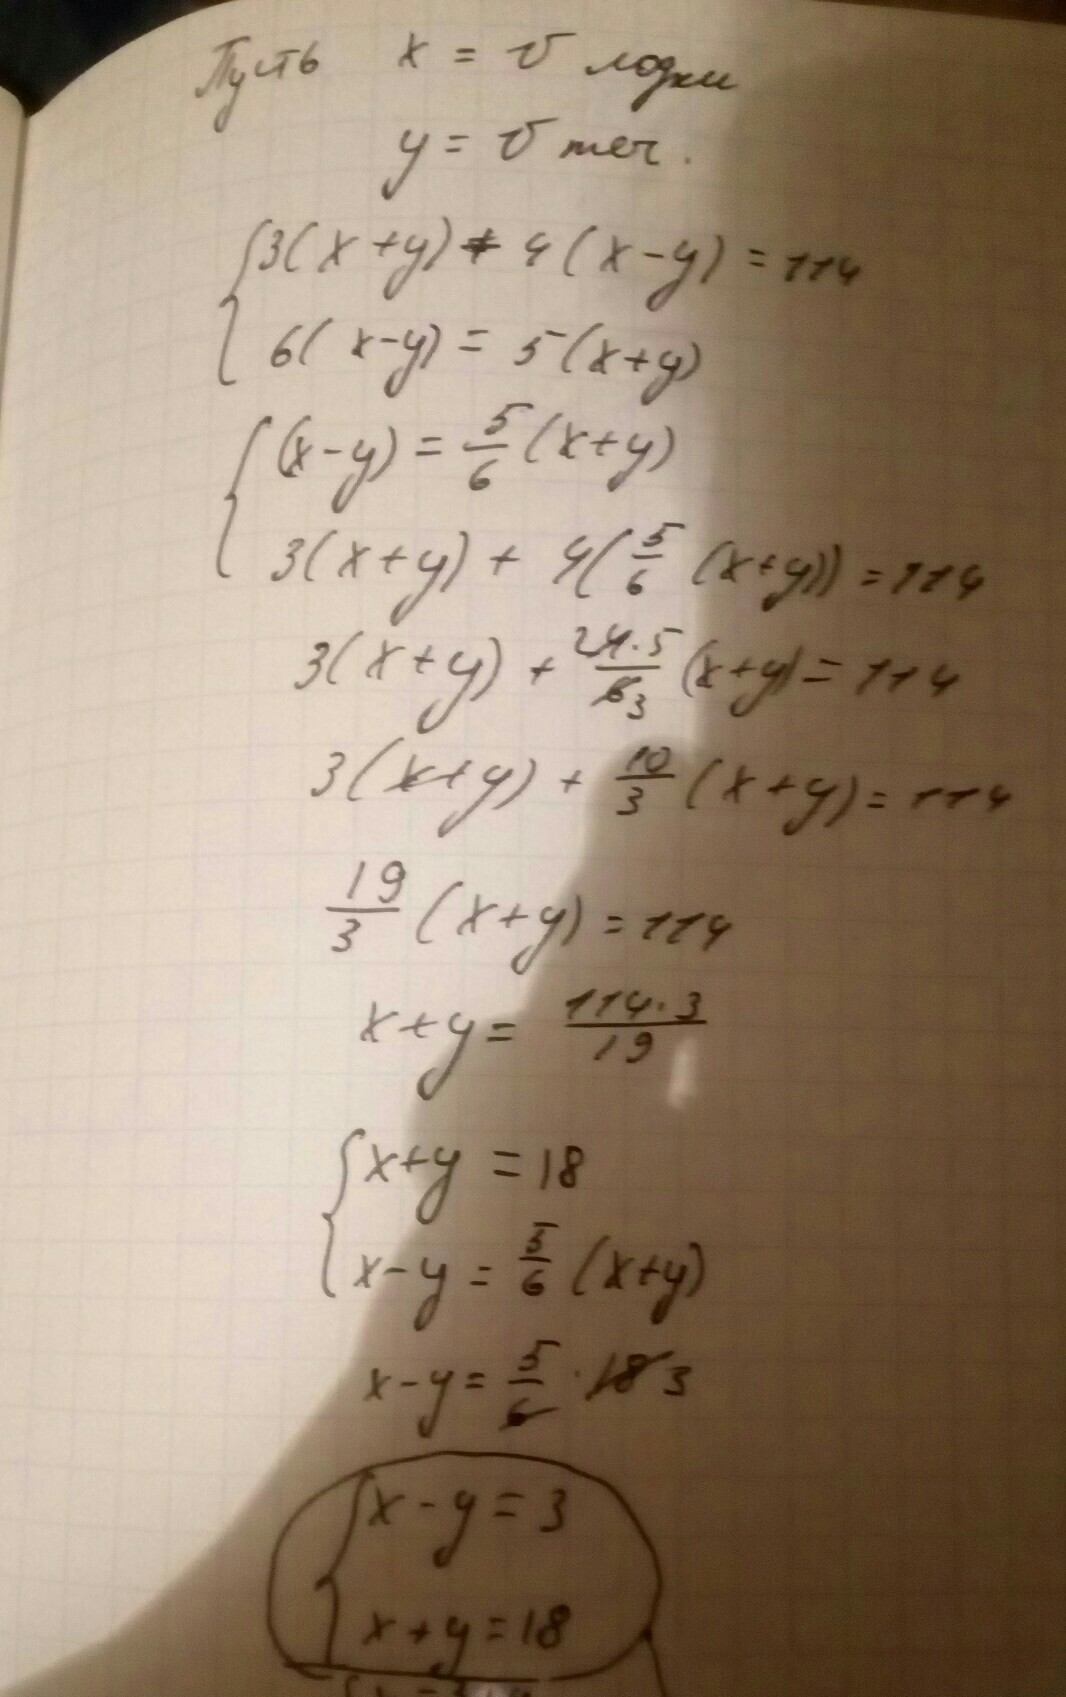 Пусть x = v лодки
y = v теч.
{3(x+y) + 4(x-y) = 114
6(x-y) = 5(x+y)
{(x-y) = 5/6 (x+y)
3(x+y) + 4(5/6 (x+y)) = 114
3(x+y) + 2 4·5/6 3 (x+y) = 114
3(x+y) + 10/3 (x+y) = 114
19/3 (x+y) = 114
x+y = 114·3/19
{x+y = 18
x-y = 5/6 (x+y)
x-y = 5/6 · 18 3
{x-y = 3
x+y = 18